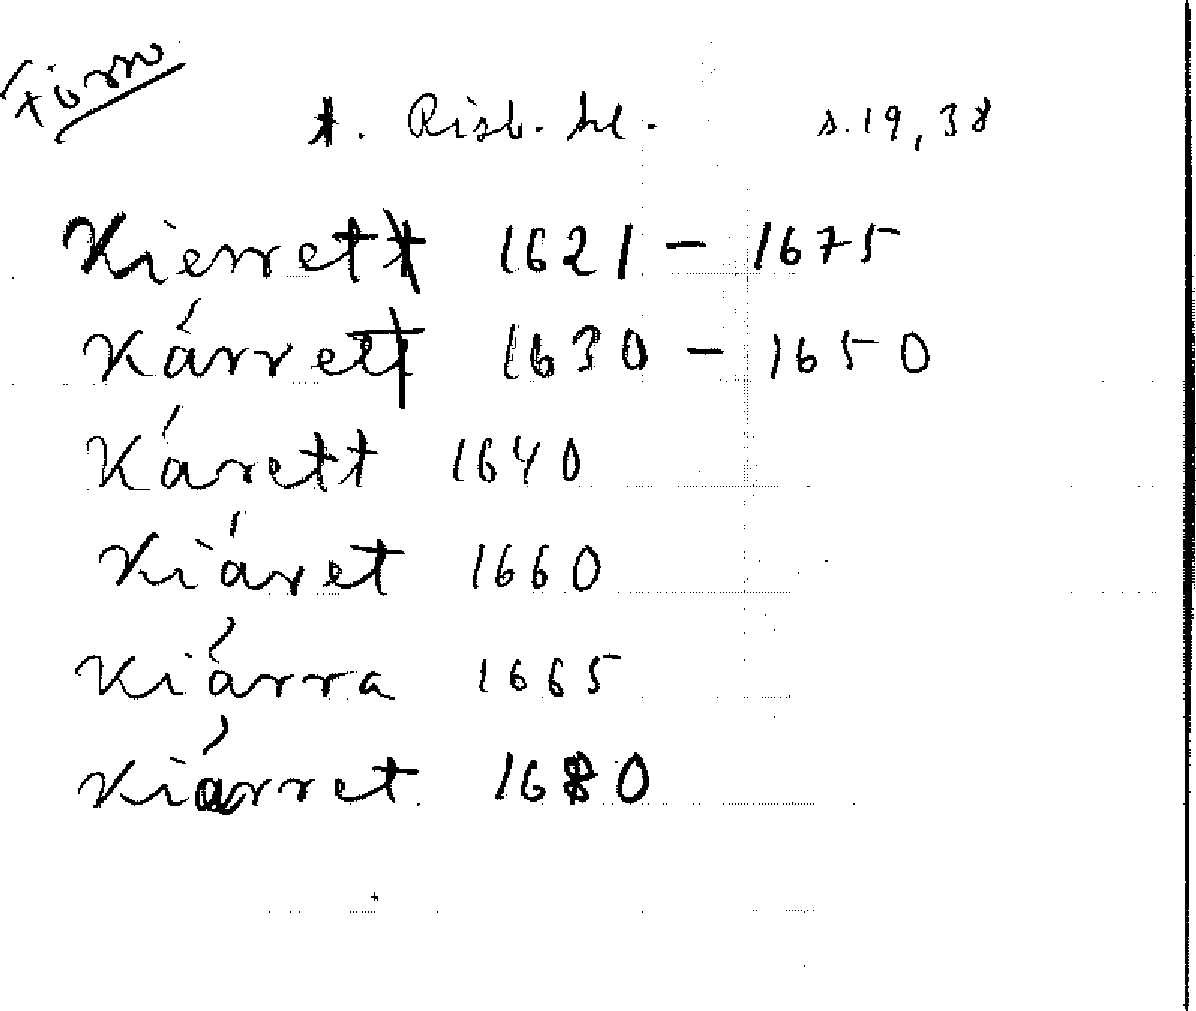 Risb. hl. s. 19, 38
Kierrett 1621 - 1675
Kárrett 1630 - 1650
Kárett 1640
Kiáret 1660
Kiárra 1665
Kiárret 1680